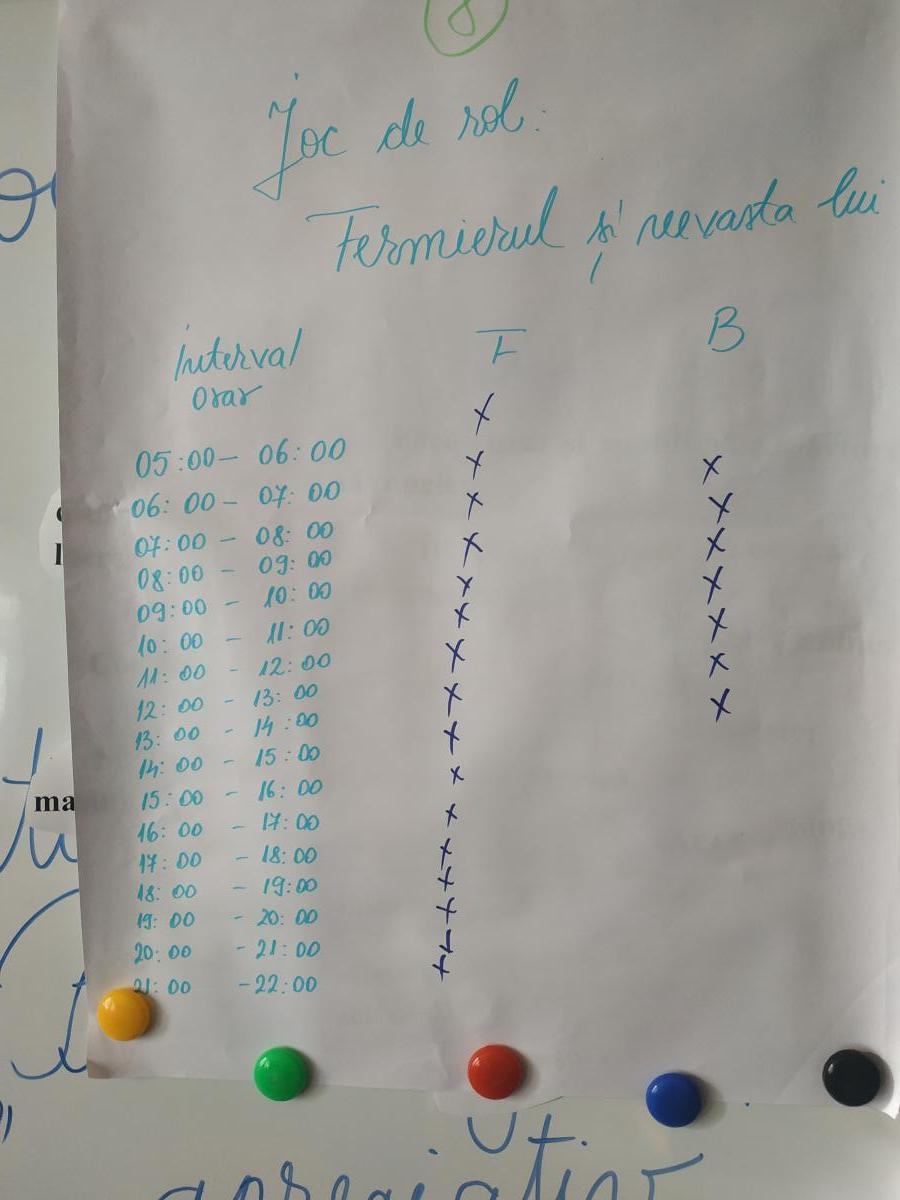 8
Joc de rol:
Fermierul și nevasta lui
Interval orar F B
x
05:00 - 06:00 x x
06:00 - 07:00 x x
07:00 - 08:00 x x
08:00 - 09:00 x x
09:00 - 10:00 x x
10:00 - 11:00 x x
11:00 - 12:00 x x
12:00 - 13:00 x
13:00 - 14:00 x
14:00 - 15:00 x
15:00 - 16:00 x
16:00 - 17:00 x
17:00 - 18:00 x
18:00 - 19:00 x
19:00 - 20:00 x
20:00 - 21:00 x
21:00 - 22:00
ma